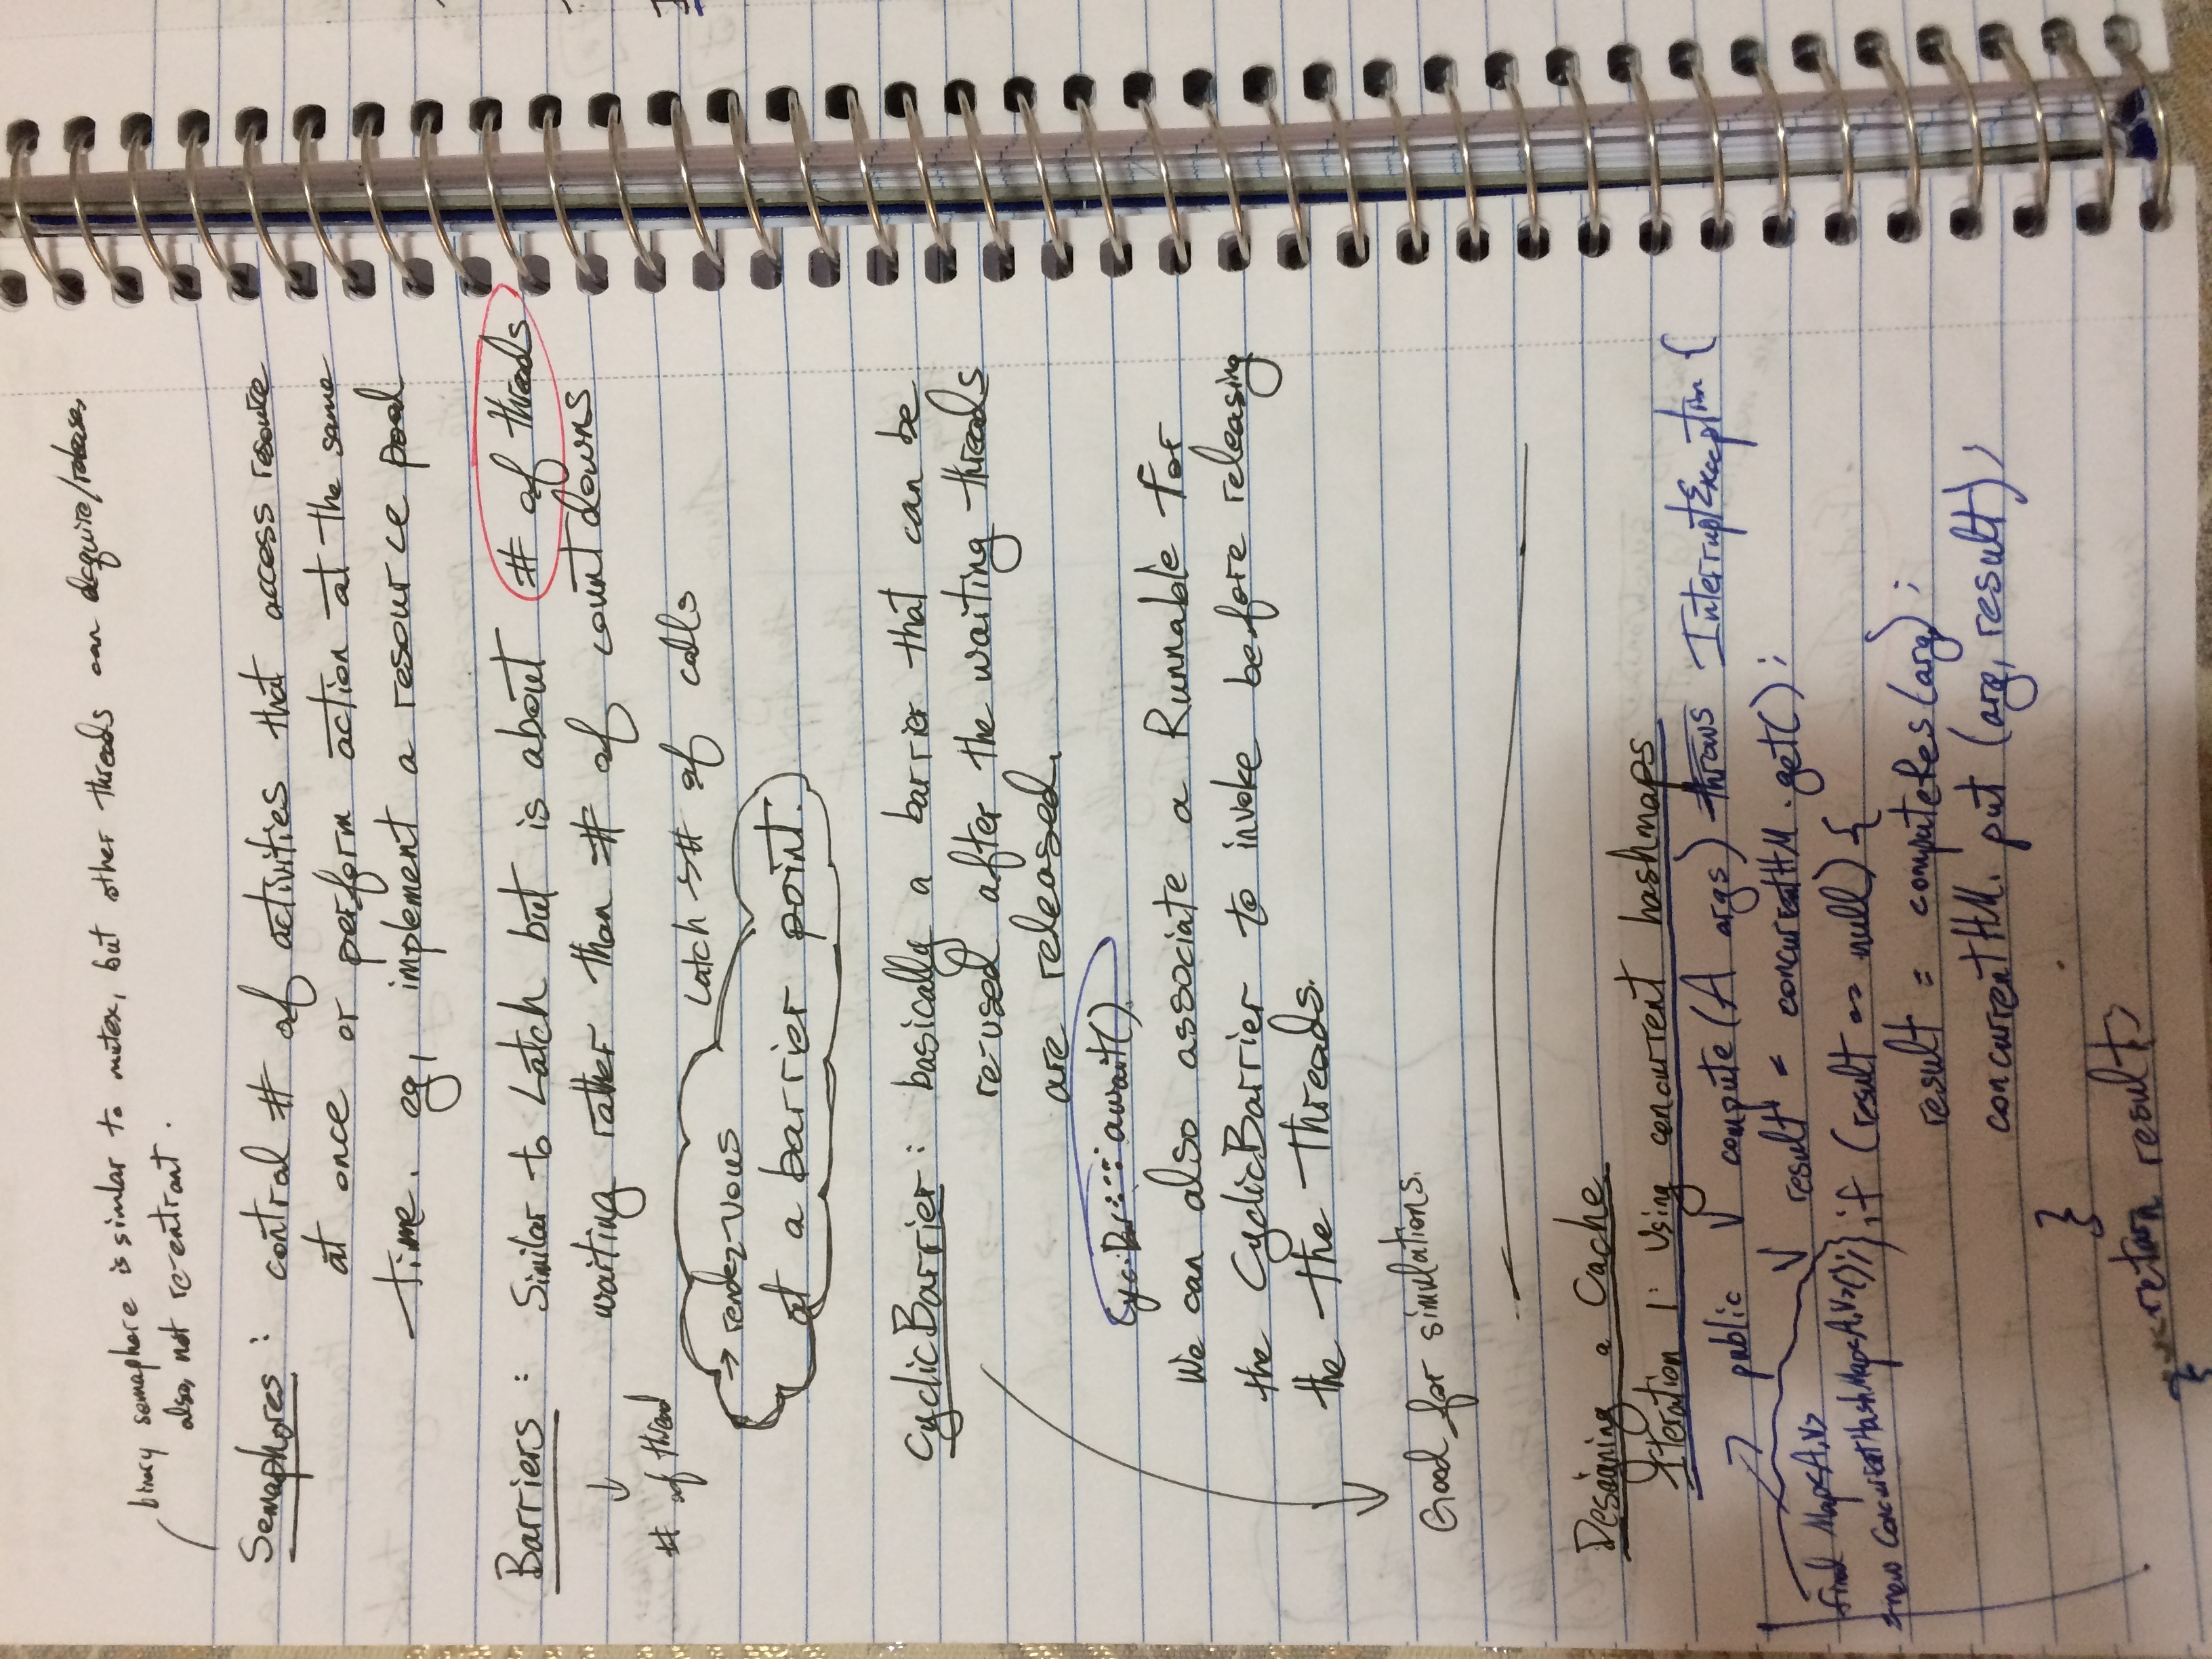 binary semaphore is similar to mutex, but other threads can acquire/release,
also, not re-entrant.
Semaphores : control # of activities that access resource
at once or perform action at the same
time. eg, implement a resource pool
Barriers : Similar to Latch but is about # of threads
waiting rather than # of countdowns
↓
# of thread
Latch → # of calls
→ rendez-vous
at a barrier point.
CyclicBarrier : basically a barrier that can be
re-used after the waiting threads
are released.
await().
We can also associate a Runnable for
the CyclicBarrier to invoke before releasing
the the threads.
Good for simulations.
Designing a Cache
Iteration 1: Using concurrent hashmaps
public V compute(A args) throws InterruptException {
V result = concurrentHM.get();
final Map<A,V>
= new ConcurrentHashMap<A,V>();
if (result == null) {
result = computeRes(arg);
concurrentHM.put(arg, result);
}
return result;
}